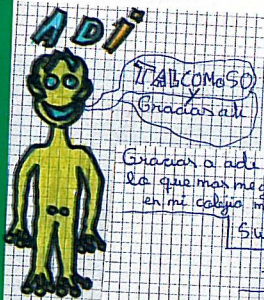 ADI
TAL COMO SO
Y
Gracias a ti
Gracias a adi
lo que mas me g
en mi colegio m
Su